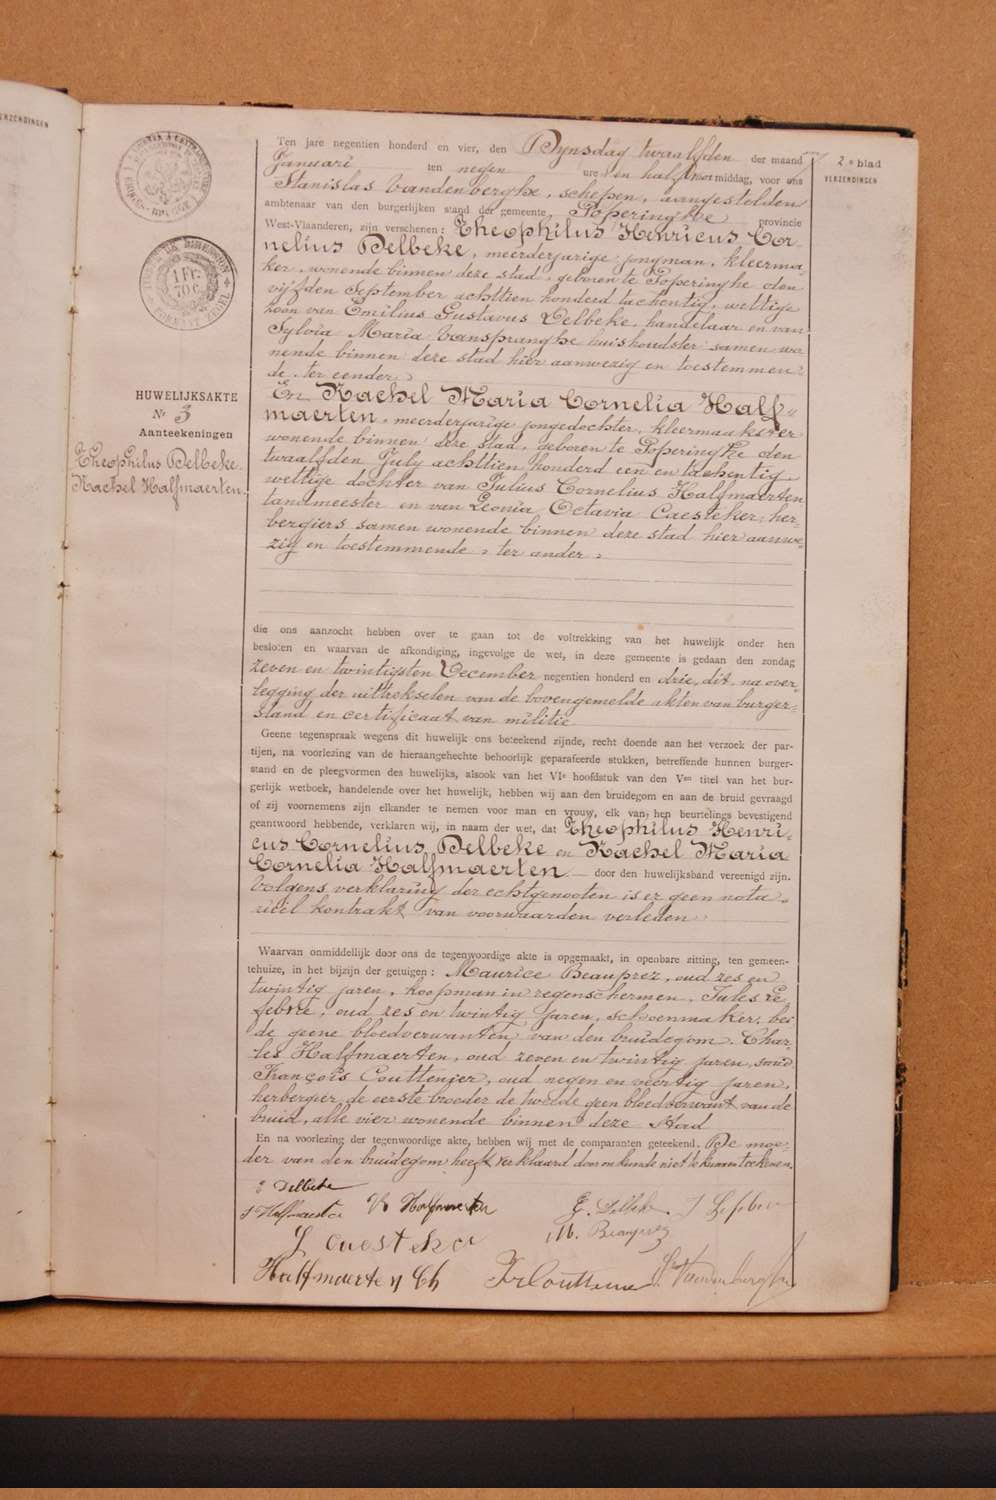 VERZENDINGEN
1 FC
70 C
HUWELIJKSAKTE
Nr 3
Aanteekeningen
Theophilus Delbeke
Rachel Halfmaerten.
2e blad
VERZENDINGEN
Ten jare negentien honderd en vier, den Dijnsdag twaalfden der maand
Januari ten negen ure en half voormiddag, voor ons
Stanislas Vandenberghe, schepen, aangestelden
ambtenaar van den burgerlijken stand der gemeente Poperinghe provincie
West-Vlaanderen, zijn verschenen: Theophilus Henricus Cor-
nelius Delbeke, meerderjarige jongman, kleerma-
ker, wonende binnen deze stad, geboren te Poperinghe den
vijfden September achttien honderd tachentig, wettige
zoon van Emilius Gustavus Delbeke, handelaar en van
Sylvia Maria Vanspranghe huishoudster samen wo-
nende binnen deze stad hier aanwezig en toestemmen-
de, ter eender,
En Rachel Maria Cornelia Half-
maerten, meerderjarige jongedochter, kleermaakerer
wonende binnen deze stad, geboren te Poperinghe den
twaalfden July achttien honderd een en tachentig
wettige dochter van Julius Cornelius Halfmaerten
tandmeester en van Leonia Octavia Caesteker, her-
bergiers samen wonende binnen deze stad hier aanwe-
zig en toestemmende, ter ander,
die ons aanzocht hebben over te gaan tot de voltrekking van het huwelijk onder hen
besloten en waarvan de afkondiging, ingevolge de wet, in deze gemeente is gedaan den zondag
zeven en twintigsten December negentien honderd en drie, dit, na over-
legging der uittrekselen van de bovengemelde akten van burger-
stand en certificaat van militie
Geene tegenspraak wegens dit huwelijk ons beteekend zijnde, recht doende aan het verzoek der par-
tijen, na voorlezing van de hieraangehechte behoorlijk geparafeerde stukken, betreffende hunnen burger-
stand en de pleegvormen des huwelijks, alsook van het VIe hoofdstuk van den Ven titel van het bur-
gerlijk wetboek, handelende over het huwelijk, hebben wij aan den bruidegom en aan de bruid gevraagd
of zij voornemens zijn elkander te nemen voor man en vrouw, elk van hen beurtelings bevestigend
geantwoord hebbende, verklaren wij, in naam der wet, dat Theophilus Henri-
cus Cornelius Delbeke en Rachel Maria
Cornelia Halfmaerten door den huwelijksband vereenigd zijn.
Volgens verklaring der echtgenooten is er geen nota-
rieel kontrakt van voorwaarden verleden
Waarvan onmiddellijk door ons de tegenwoordige akte is opgemaakt, in openbare zitting, ten gemeen-
tehuize, in het bijzijn der getuigen: Maurice Beauprez, oud zes en
twintig jaren, koopman in regenschermen, Jules Le-
febvre, oud zes en twintig jaren, schoenmaker, bei-
de geene bloedverwanten van den bruidegom. Char-
les Halfmaerten, oud zeven en twintig jaren,
François Couttenier, oud negen en veertig jaren,
herbergier, de eerste broeder de tweede geen bloedverwant van de
bruid, alle vier wonende binnen deze stad
En na voorlezing der tegenwoordige akte, hebben wij met de comparanten geteekend. De moe-
der van den bruidegom heeft verklaard door onkunde niet te kunnen teekenen.
E Delbeke
J Halfmaerten R Halfmaerten E. Delbeke J Lefebvre
L Caesteker M. Beauprez
Halfmaerten Ch Fr Couttenier St Vandenberghe